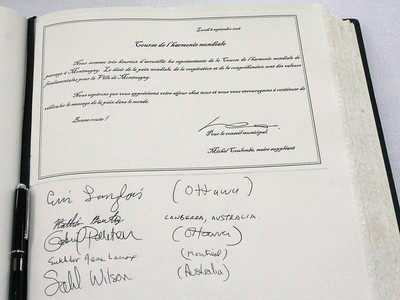 Lundi 8 septembre 2008
Course de l'harmonie mondiale
Nous sommes très heureux d'accueillir les représentants de la Course de l'harmonie mondiale de
passage à Montmagny. Le désir de la paix mondiale, de la coopération et de la compréhension sont des valeurs
fondamentales pour la Ville de Montmagny.
Nous espérons que vous appréciez votre séjour chez nous et nous vous encourageons à continuer de
véhiculer le message de la paix dans le monde.
Bonne route !
Pour le conseil municipal,
Michel Coulombe, maire suppléant
Eric Langlois (Ottawa)
CANBERRA, AUSTRALIA
(Ottawa)
Jean (Montreal)
Sahl Wilson (Australia)